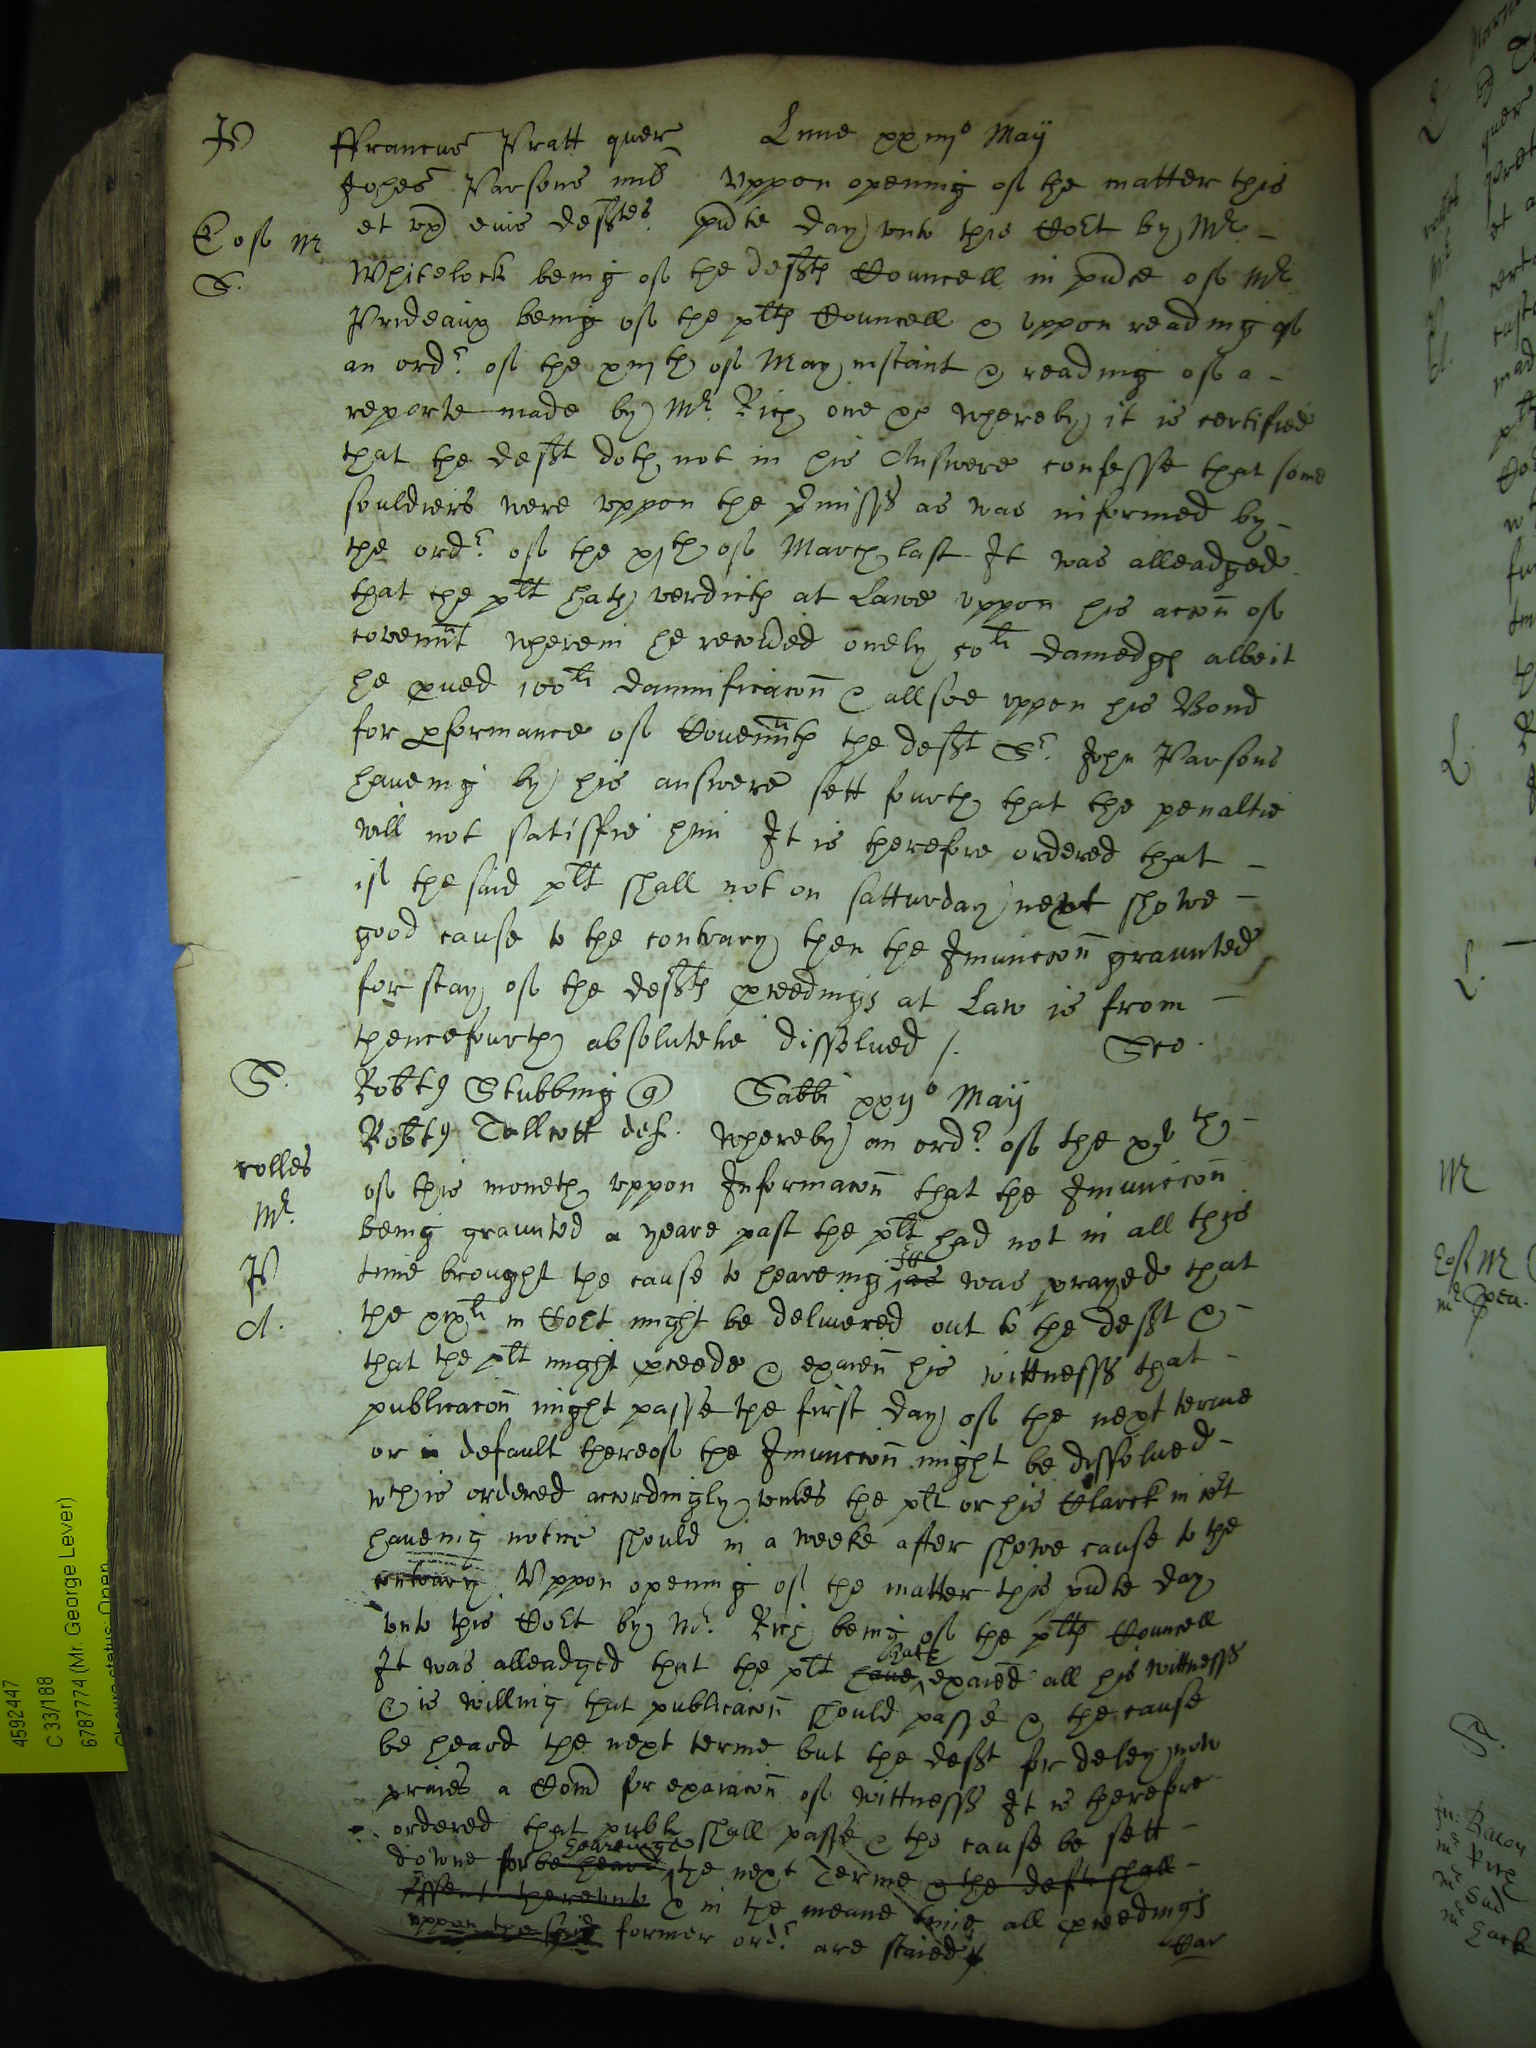 P
Coss Mr
S.
ffrancus Pratt quer Lune xxiiijo Maij
Johes Parsons mil Vppon opening of the matter this
et vx eius defftes. pnte day vnto this Cort by Mr. –
Whitelock being of the deffts Councell in pnce of Mr.
Prideaux being of the plts Councell & vppon reading of
an ordr. of the xiijth of May instant & reading of a –
reporte made by Mr. Rich one &c whereby it is certified
that the defft doth not in his Answere confesse that some
souldiers were vppon the pmisss as was informed by –
the ordr. of the xjth of March last It was alleadged
that the plt hath verdicts at Lawe vppon his accon of
covennt wherein he recoued onely 50li damedgs albeit
he pued 100li damnificacon & allsoe vppon his Bond
for pformance of Couennts the defft Sr. John Parsons
haueing by his answere sett fourth that the penaltie
will not satisfie him It is therefore ordered that –
if the said plt shall not on Satturday next showe –
good cause to the contrary then the Iniunccon graunted
for stay of the deffts pceedings at Law is from –
thencefourth absolutelie dissolued /. Sco.
S.
rolles
Mr.
P
A.
Robtus Stubbing Q Sabbi xxijo Maij
Robtus Tallcott def. whereby an ordr. of the th –
of this moneth vppon Informacon that the Iniunccon
being graunted a yeare past the plt had not in all this
time brought the cause to heareing Itt was prayed that
the li in Cort might be deliuered out to the defft & –
that the plt might pceede & exaien his wittnesss that –
publicacon might passe the first day of the next terme
or in default thereof the Iniunccon might be dissolued –
wch is ordered accordingly vnles the plt or his Clarck in Cort
haueing notice should in a weeke after showe cause to the
contrary. Vppon opening of the matter this pnte day
vnto this Cort by Mr. Rich being of the plts Councell
It was alleadged that the plt haue hath exaied all his wittnesss
& is willing that publicacon should passe & the cause
be heard the next terme but the defft for deley now
praies a Com for exaiacon of wittnesss It is therefore
ordered that publ shall passe & the cause be sett –
downe for be heard heareinge the next Terme & the deft shall –
assent therevnto & in the meane time all pceedings
vppon the said former ordr. are staied /. Car
4592447
C 33/188
6787774 (Mr. George Lever)
Closure status: Open